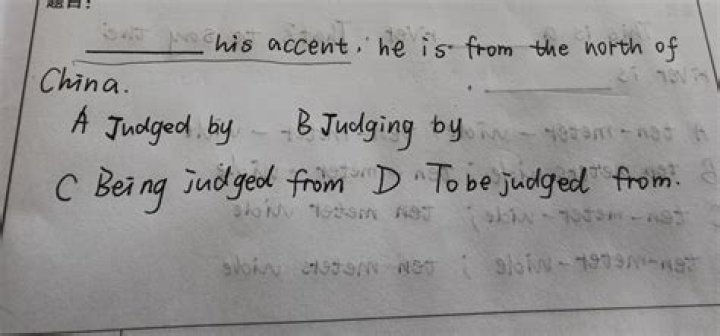 题目:
________ his accent, he is from the north of
China.
A Judged by B Judging by
C Being judged from D To be judged from.